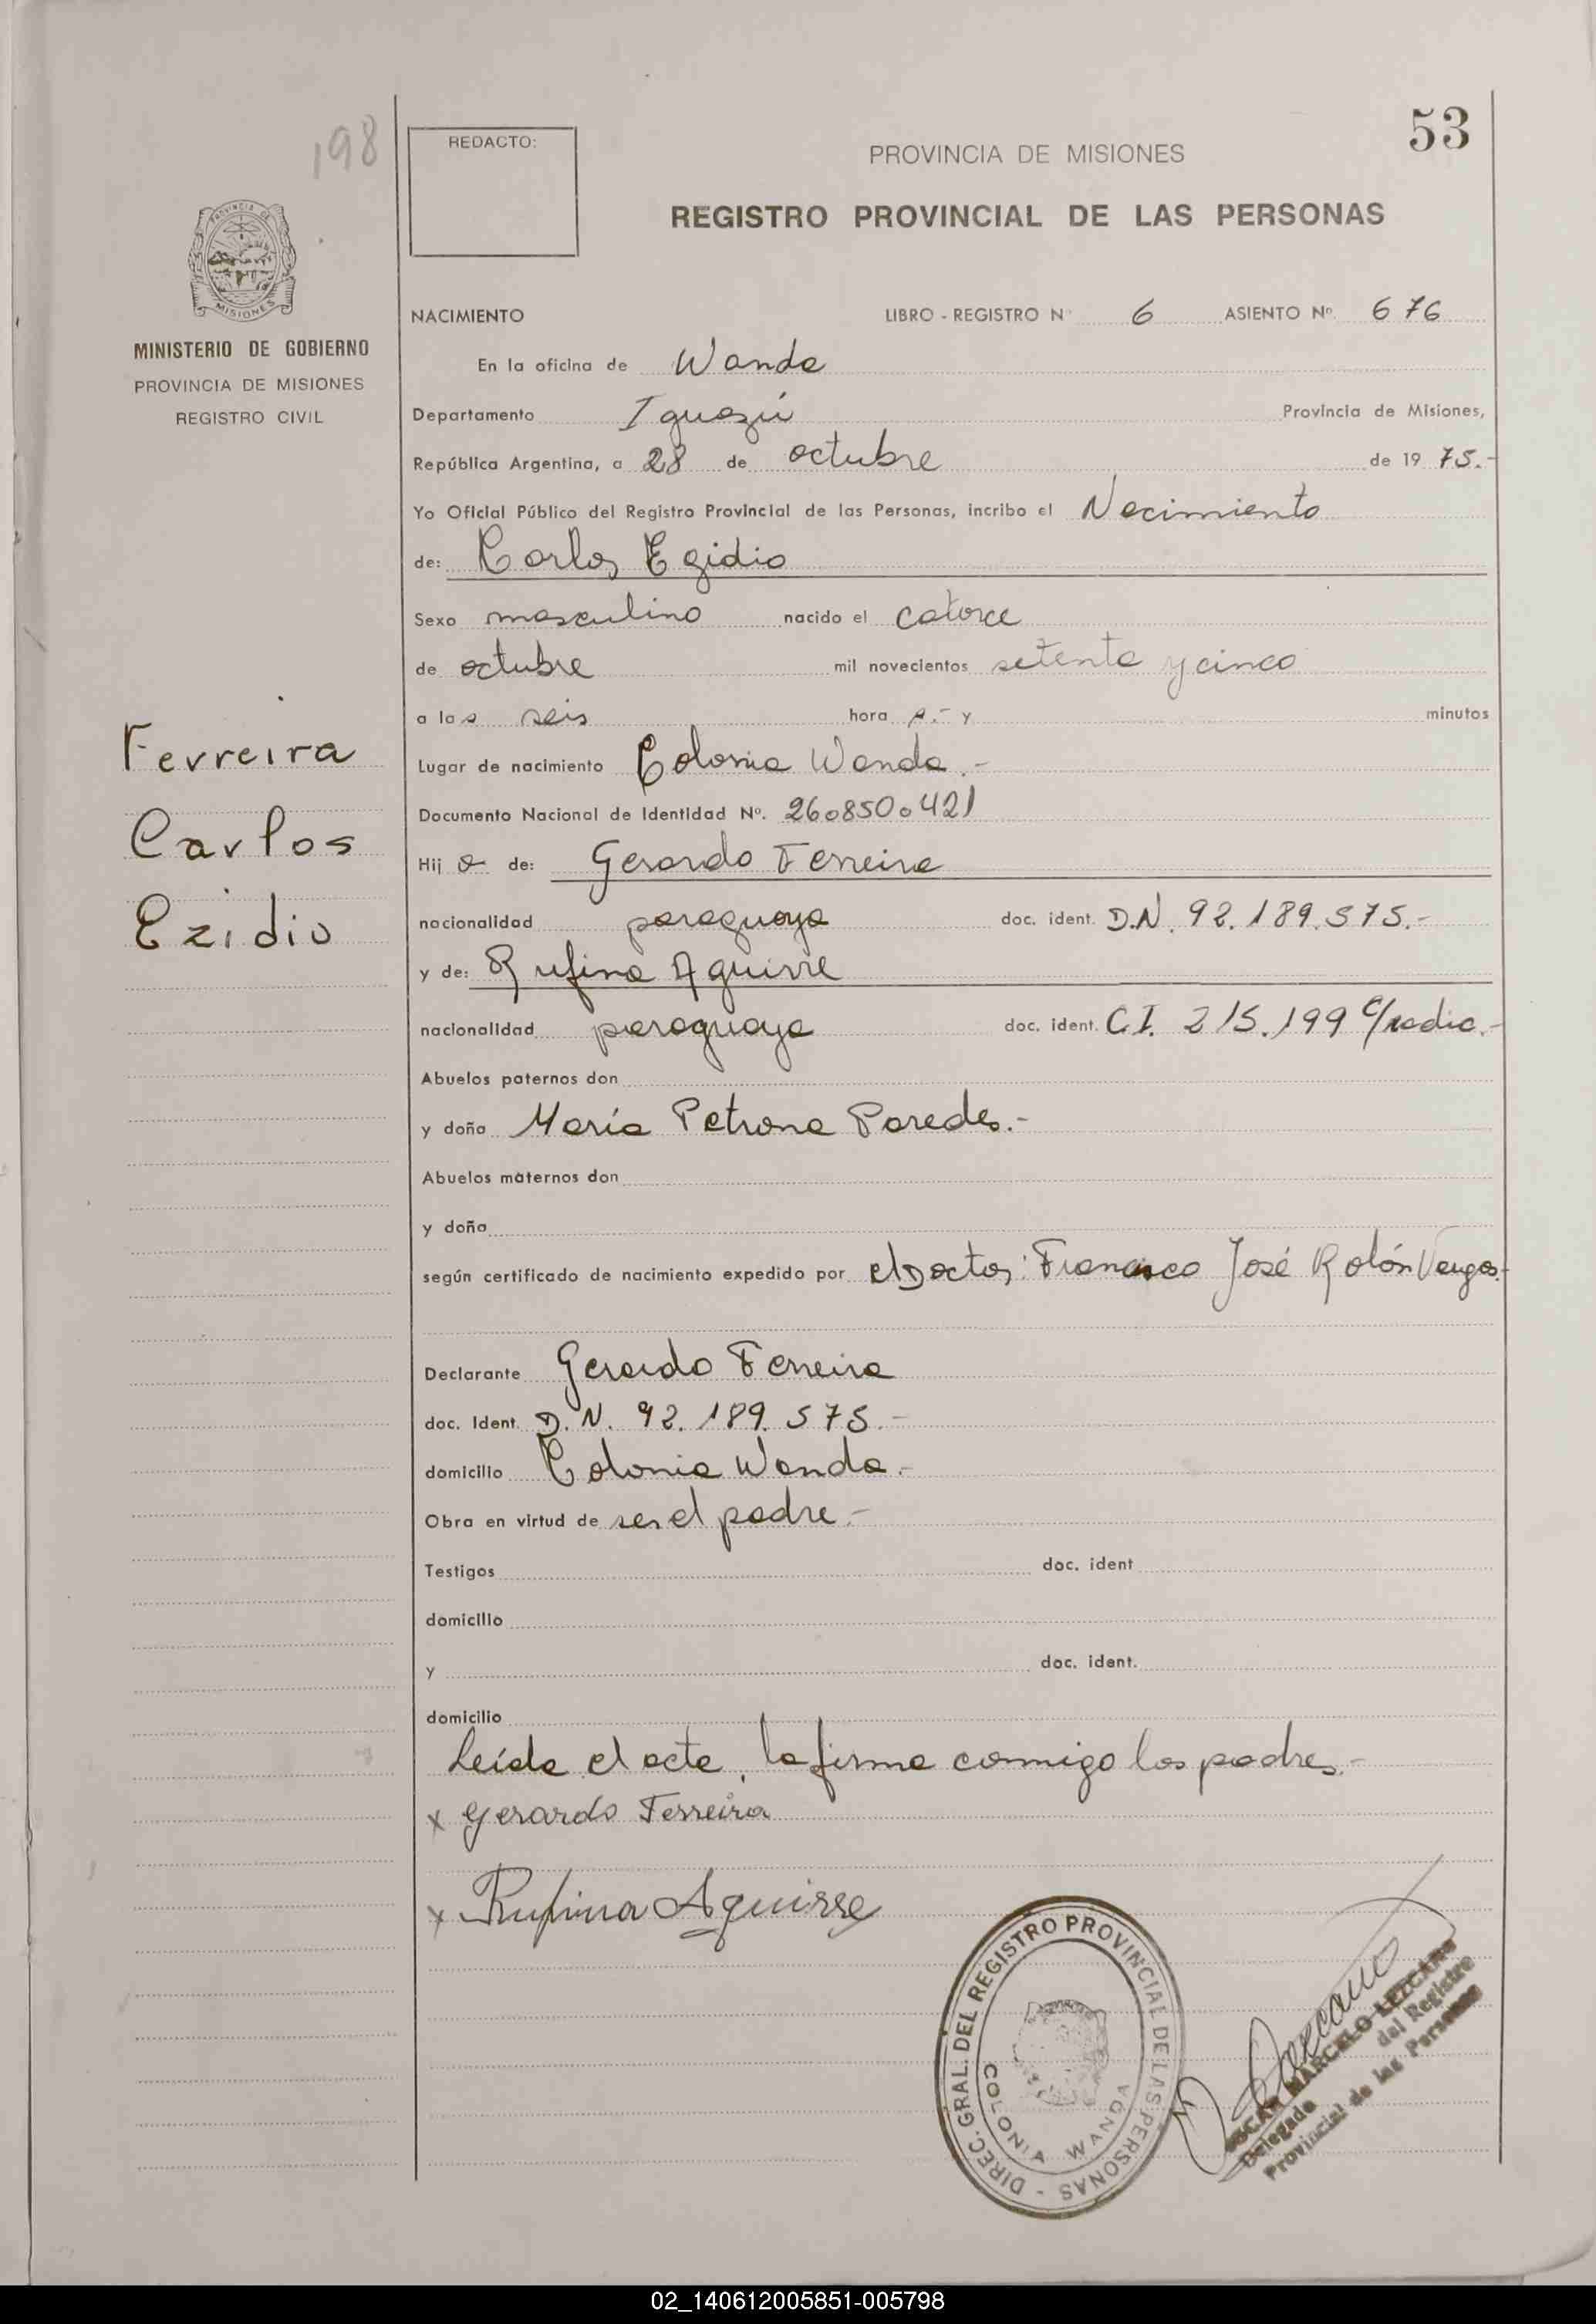 198
53
REDACTO:
PROVINCIA DE MISIONES
REGISTRO PROVINCIAL DE LAS PERSONAS
PROVINCIA DE
MISIONES
MINISTERIO DE GOBIERNO
PROVINCIA DE MISIONES
REGISTRO CIVIL
NACIMIENTO LIBRO - REGISTRO N° 6 ASIENTO Nº. 676
En la oficina de Wanda
Departamento Iguazú Provincia de Misiones,
República Argentina, a 28 de octubre de 19 75.-
Yo Oficial Público del Registro Provincial de las Personas, incribo el Nacimiento
de: Carlos Egidio
Sexo masculino nacido el catorce
de octubre mil novecientos setenta y cinco
a las seis hora s.- y minutos
Lugar de nacimiento Colonia Wanda.-
Documento Nacional de Identidad Nº. 2608500421
Hij o de: Gerardo Ferreira
nacionalidad paraguaya doc. ident. D.N. 92.189.575.-
y de: Rufina Aguirre
nacionalidad paraguaya doc. ident. C.I. 215.199 c/radic.-
Abuelos paternos don
y doña María Petrona Paredes.-
Abuelos maternos don
y doña
según certificado de nacimiento expedido por el Doctor: Francisco José Rolón Vargas.-
Declarante Gerardo Ferreira
doc. Ident. D.N. 92.189.575.-
domicilio Colonia Wanda.-
Obra en virtud de ser el padre.-
Testigos doc. ident
domicilio
y doc. ident.
domicilio
Leída el acta, la firma conmigo los padres.-
x Gerardo Ferreira
x Rufina Aguirre
Ferreira
Carlos
Ezidio
DIREC. GRAL. DEL REGISTRO PROVINCIAL DE LAS PERSONAS -
COLONIA WANDA
OSCAR MARCELO LEZCANO
Delegado del Registro
Provincial de las Personas
02_140612005851-005798